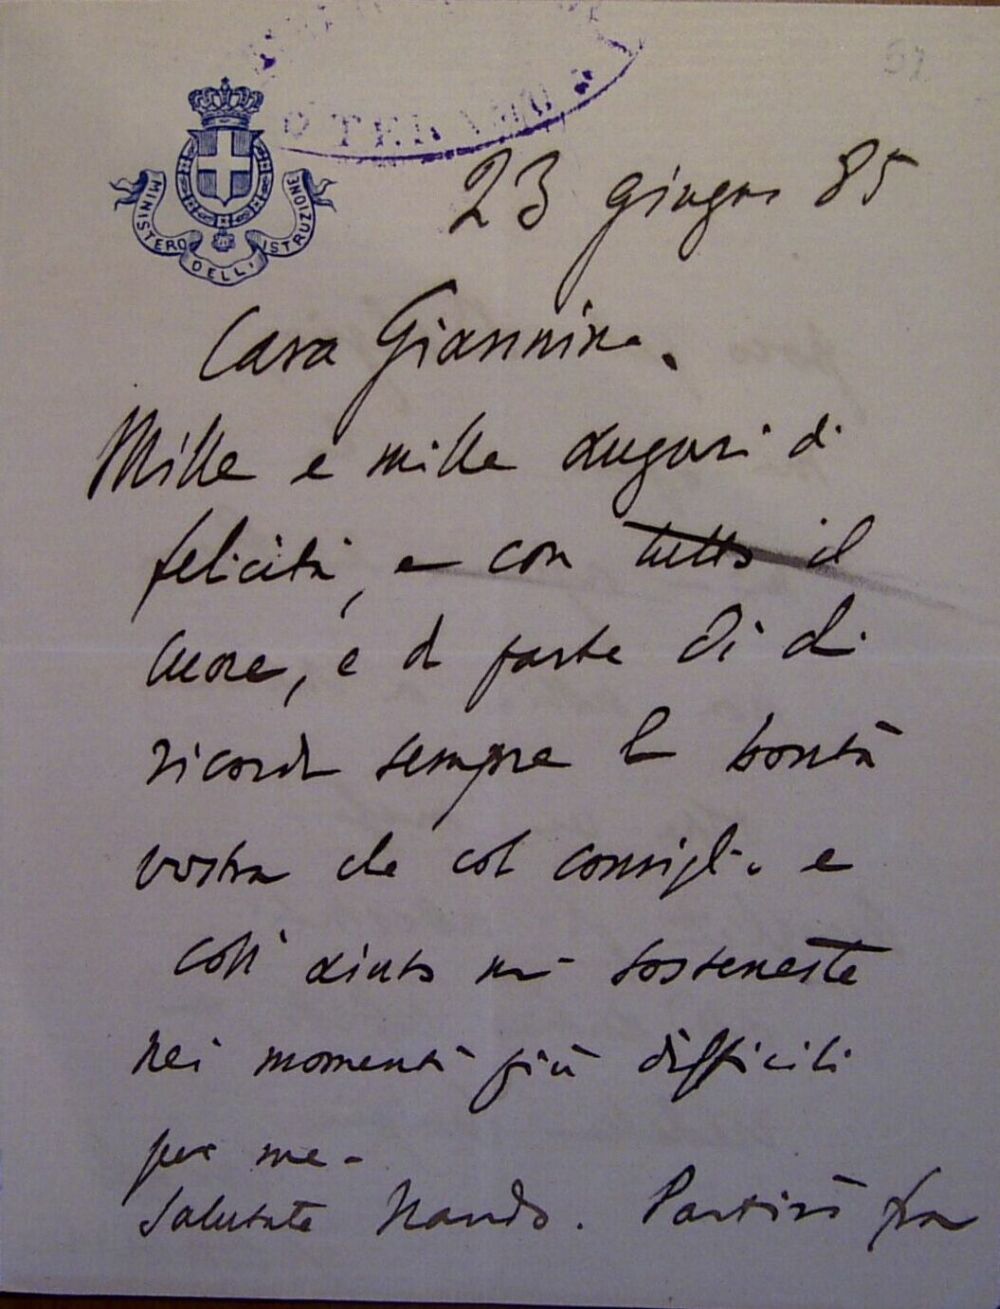 O TERAMO
MINISTERO DELL' ISTRUZIONE
23 giugno 85
Cara Giannina.
Mille e mille auguri di
felicità, e con tutto il
cuore, e da parte di chi
ricorda sempre la bontà
vostra che col consiglio e
coll' aiuto mi sosteneste
nei momenti più difficili
per me -
Salutate Nando. Partirò fra